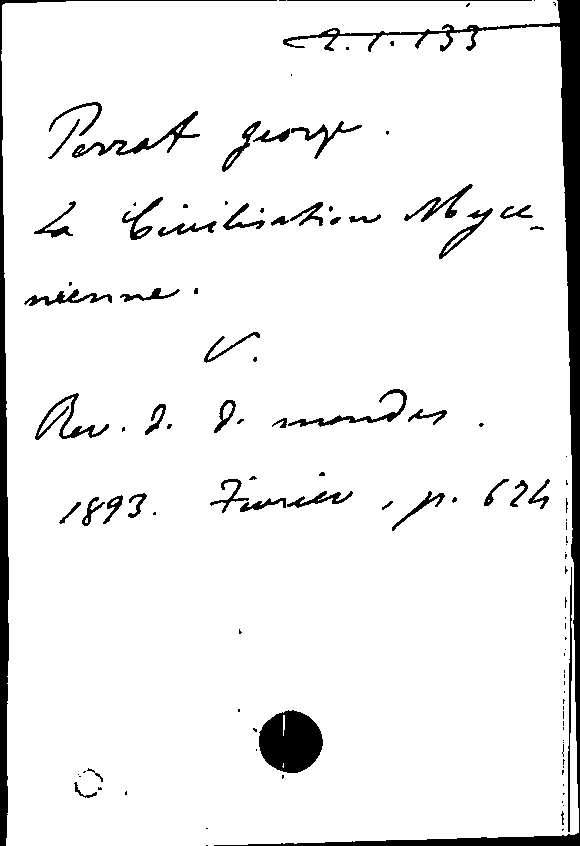 2.1.133
Perrot George.
La Civilisation Mycé-
nienne.
V.
Rev. d. d. mondes.
1893. Février, p. 624